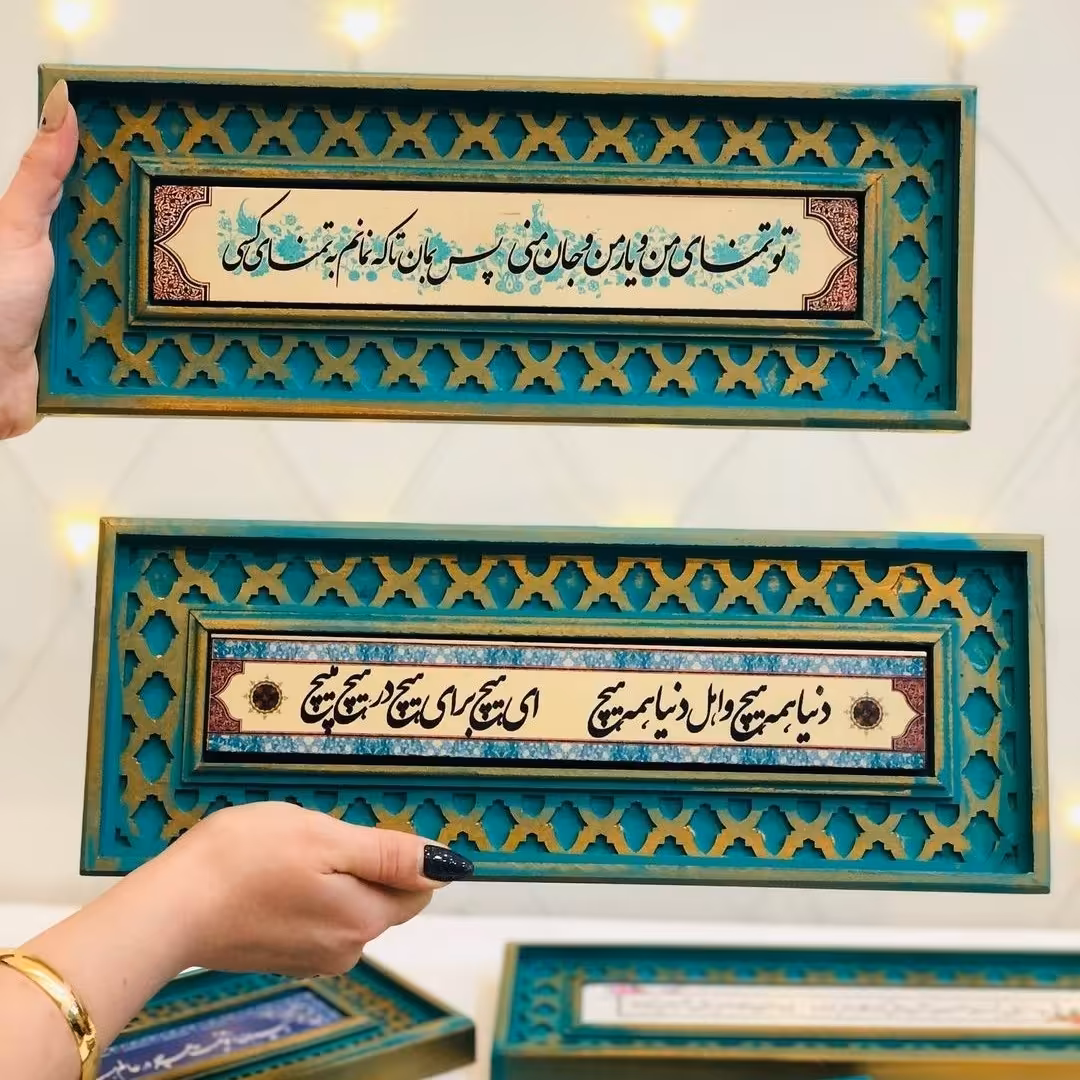 تو تمنای من و یار من و جان منی پس بمان تا که نمانم به تمنای کسی
دنیا همه هیچ و اهل دنیا همه هیچ ای هیچ برای هیچ در هیچ مپیچ